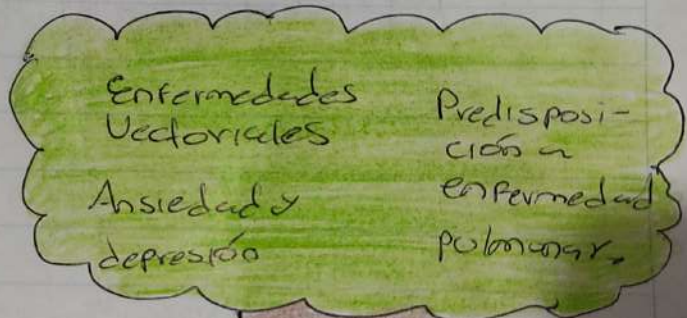 Enfermedades
Vectoriales
Ansiedad y
depresión
Predisposi-
ción a
enfermedad
pulmonar.